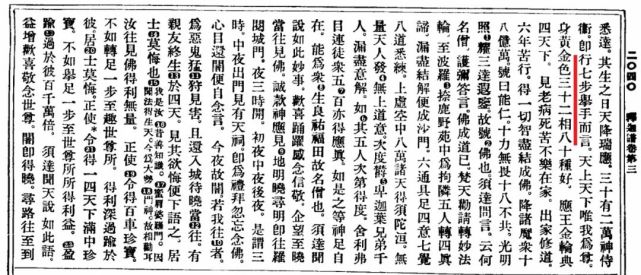 二〇四〇 釋迦譜卷第三
悉達。其生之日天降瑞應。三十有二萬神侍
衞。即行七步擧手而言。天上天下唯我爲尊
身黃金色三十二相八十種好。應王金輪典
四天下。見老病死苦不樂在家。出家修道
六年苦行。得一切智盡結成佛。降諸魔衆十
八億萬。號曰能仁。十力無畏十八不共。光明
照耀三達遐鑒故號佛也須達問言。云何
名僧。護彌答言。佛成道已梵天勸請轉妙法
輪至波羅捺鹿野苑中爲拘隣五人轉四眞
諦。漏盡結解便成沙門。六通具足四意七覺
八道悉練。上虛空中八萬諸天得須陀洹。無
量天人發無上道意。次度欝卑迦葉兄弟千
人。漏盡意解。如其五人次第得度。舍利弗
目連徒衆五百亦得應眞。如是之等神足自
在。能爲衆生良祐福田故名僧也。須達聞
說如此妙事。歡喜踊躍感念信敬。企望至曉
當往見佛。誠款神應見地明曉尋明即往羅
閱城門。夜三時開。初夜中夜後夜。是謂三
時。中夜出門見有天祠。即爲禮拜忽忘念佛。
心目還闇便自念言。今夜故闇若我往者。
爲惡鬼猛狩見害。且還入城待曉當往。有
親友終生於四天。見其欲悔便下語之。居
士莫悔也我是汝昔善知識。
門神。故相勸耳
汝往見佛得利無量。正使令得百車珍寶
不如轉足一步至趣世尊所得利深過踰於
彼。居士莫悔。正使*令得一四天下滿中珍
寶。不如擧足一步至世尊所所得利益。盈
踰過於彼百千萬倍。須達聞天說如此語。
益增歡喜敬念世尊。闇即得曉。尋路往至到